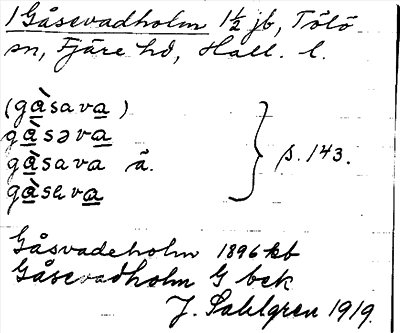 1 Gåsevadholm 1½ jb, Tölö
sn, Fjäre hd, Hall. l.
(gàsava)
gàsəva
gàsava ä.
gàsava
} s. 143.
Gåsvadeholm 1896 kb
Gåsevadholm G bek
J. Sahlgren 1919